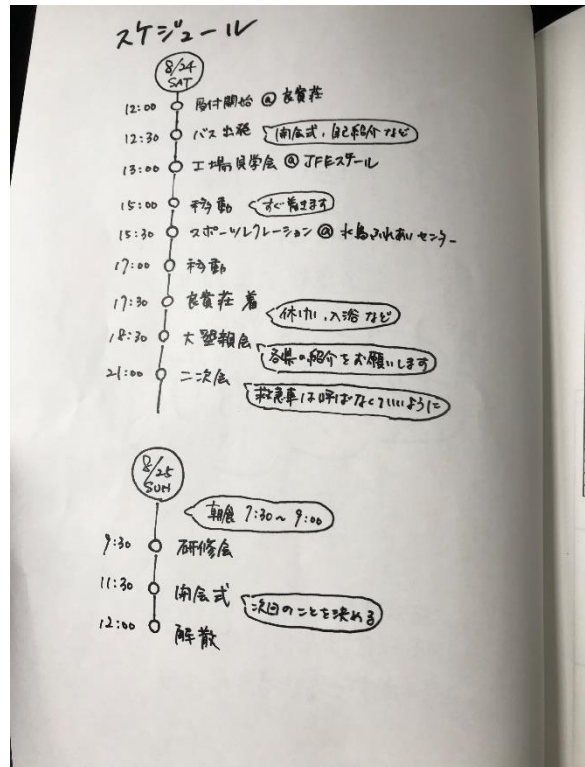 スケジュール
8/24
SAT
12:00 受付開始 @ 良寛荘
12:30 バス出発 開会式、自己紹介など
13:00 工場見学会 @ JFEスチール
15:00 移動 すぐ着きます
15:30 スポーツレクレーション @ 水島ふれあいセンター
17:00 移動
17:30 良寛荘 着
休けい、入浴など
18:30 大懇親会
各県の紹介をお願いします
21:00 二次会
救急車は呼ばなくていいように
8/25
SUN
朝食 7:30〜9:00
9:30 研修会
11:30 閉会式
次回のことを決める
12:00 解散